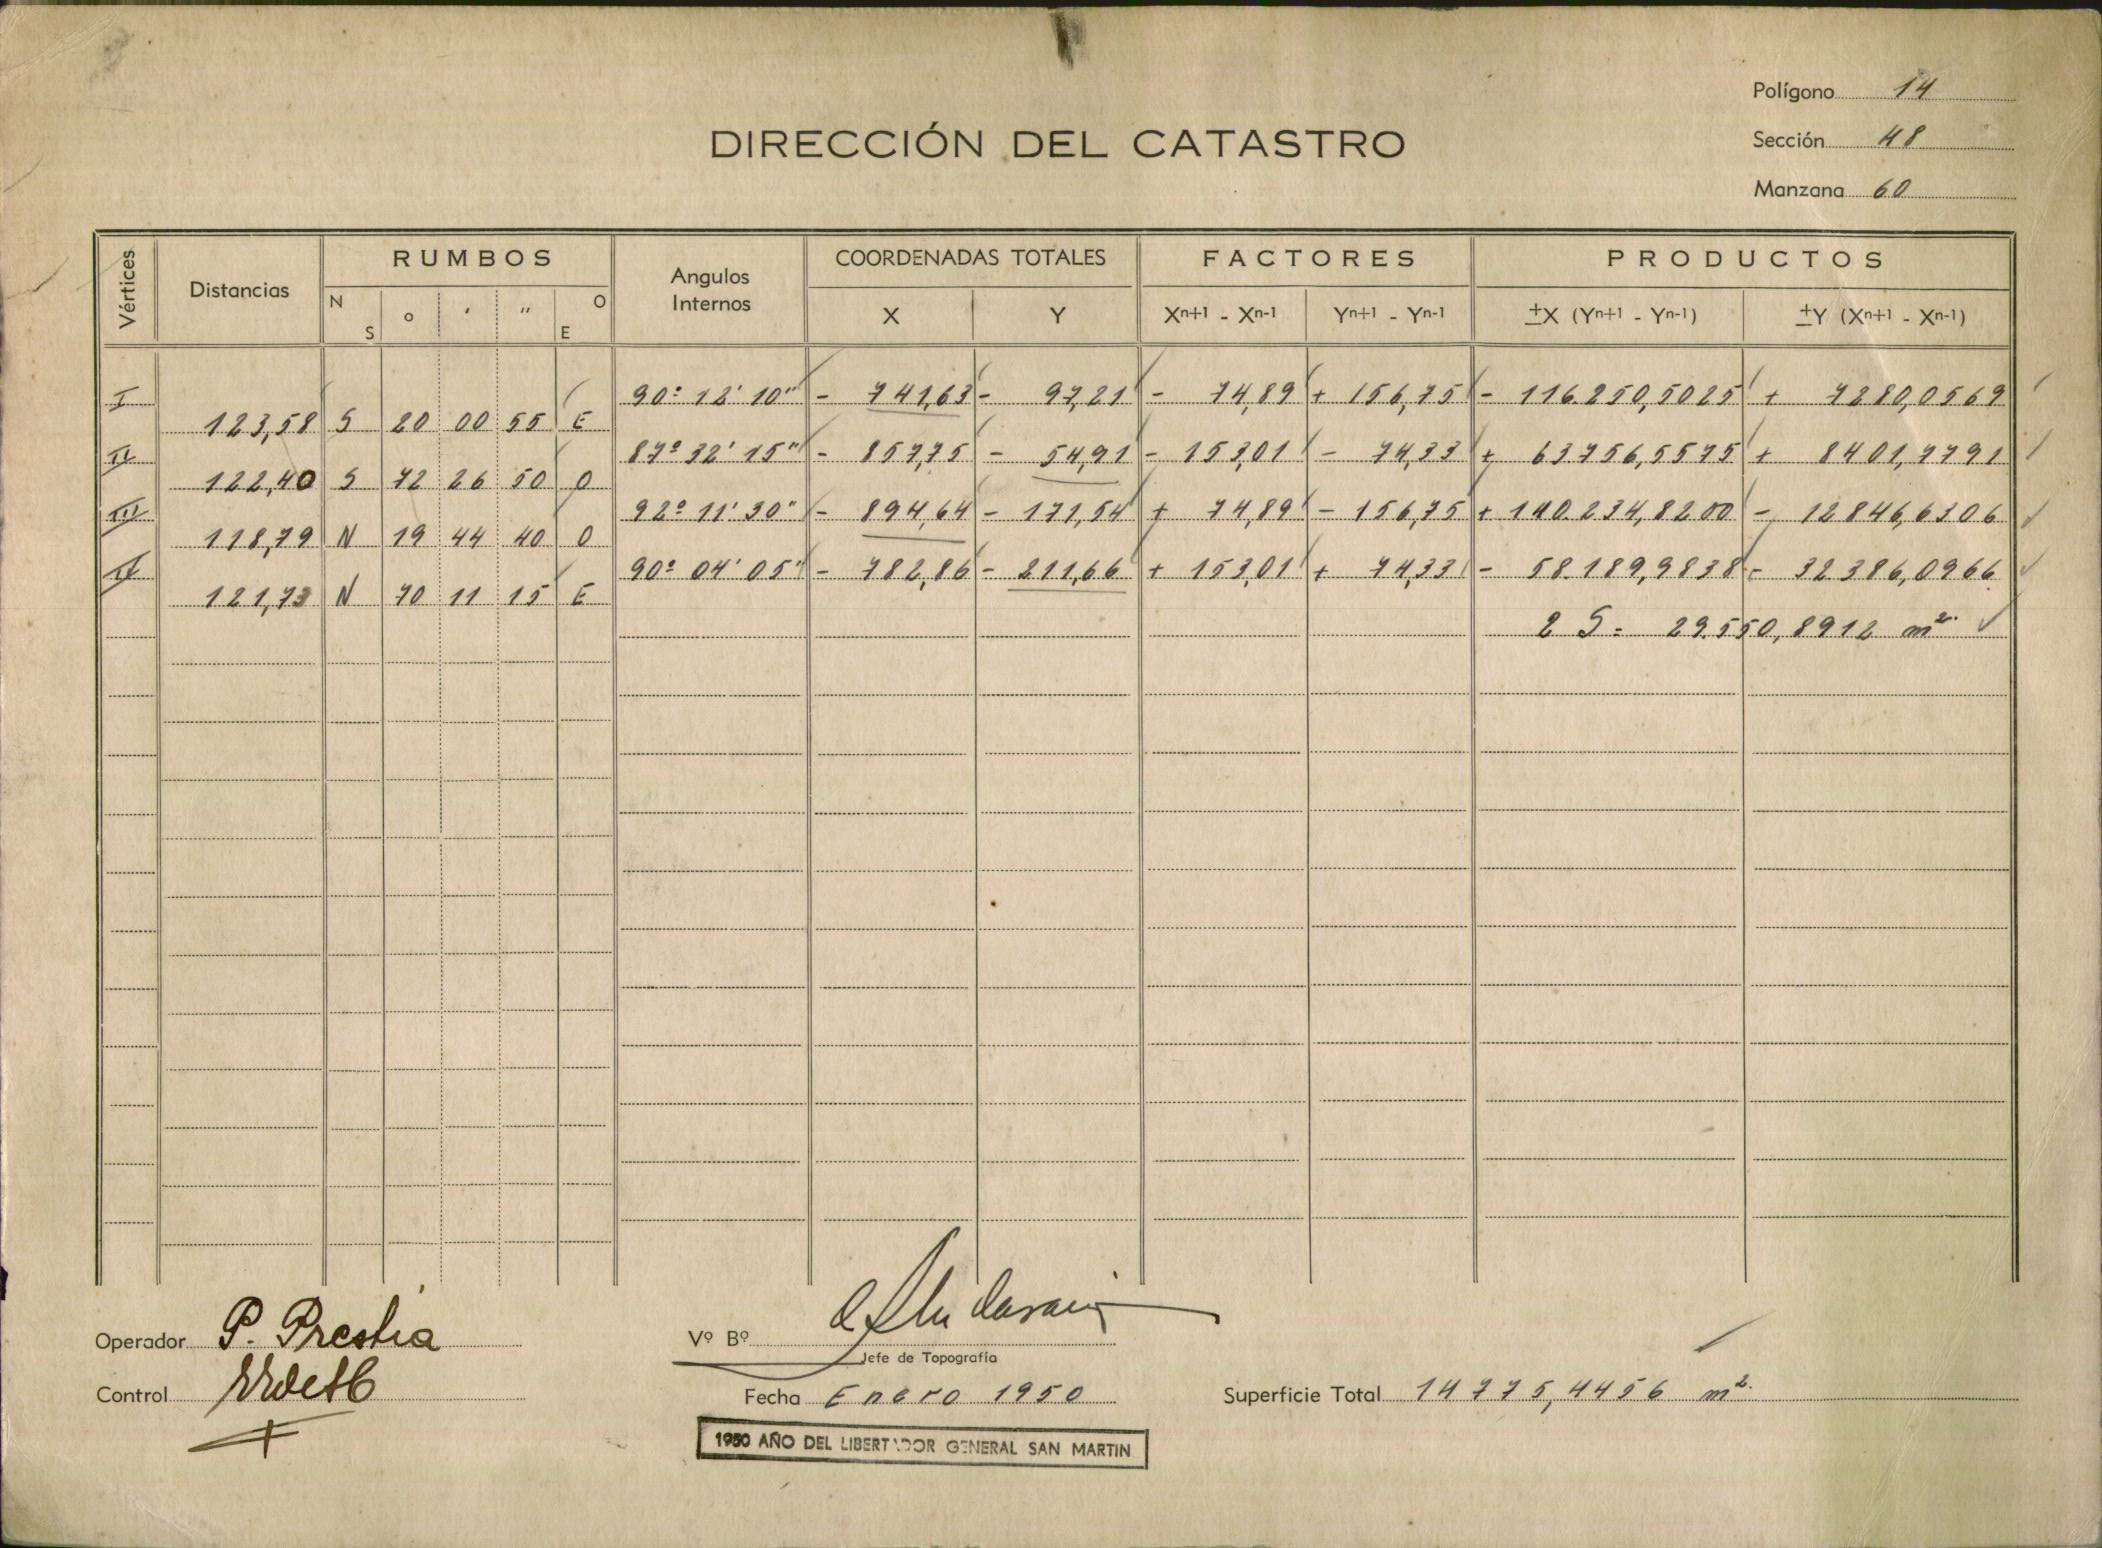 Polígono 14
DIRECCIÓN DEL CATASTRO
Sección 48
Manzana 60
Vértices Distancias RUMBOS Angulos Internos COORDENADAS TOTALES FACTORES PRODUCTOS
N S o ' " O E X Y Xn+1 - Xn-1 Yn+1 - Yn-1 ±X (Yn+1 - Yn-1) ±Y (Xn+1 - Xn-1)
I 90º 12' 10" - 741,63 - 97,21 - 74,89 + 156,75 - 116.250,5025 + 7280,0569
123,58 S 20 00 55 E
II 87º 32' 15" - 857,75 - 54,91 - 153,01 - 74,33 + 63756,5575 + 8401,7791
122,40 S 72 26 50 O
III 92º 11' 30" - 894,64 - 171,54 + 74,89 - 156,75 + 140.234,8200 - 12846,6306
118,79 N 19 44 40 O
IV 90º 04' 05" - 782,86 - 211,66 + 153,01 + 74,33 - 58.189,9838 - 32386,0966
121,73 N 70 11 15 E
2 S = 29.550,8912 m2.
Operador P. Prestia
Vº Bº
Jefe de Topografía
Control
Fecha Enero 1950
Superficie Total 14775,4456 m2.
1950 AÑO DEL LIBERTADOR GENERAL SAN MARTIN